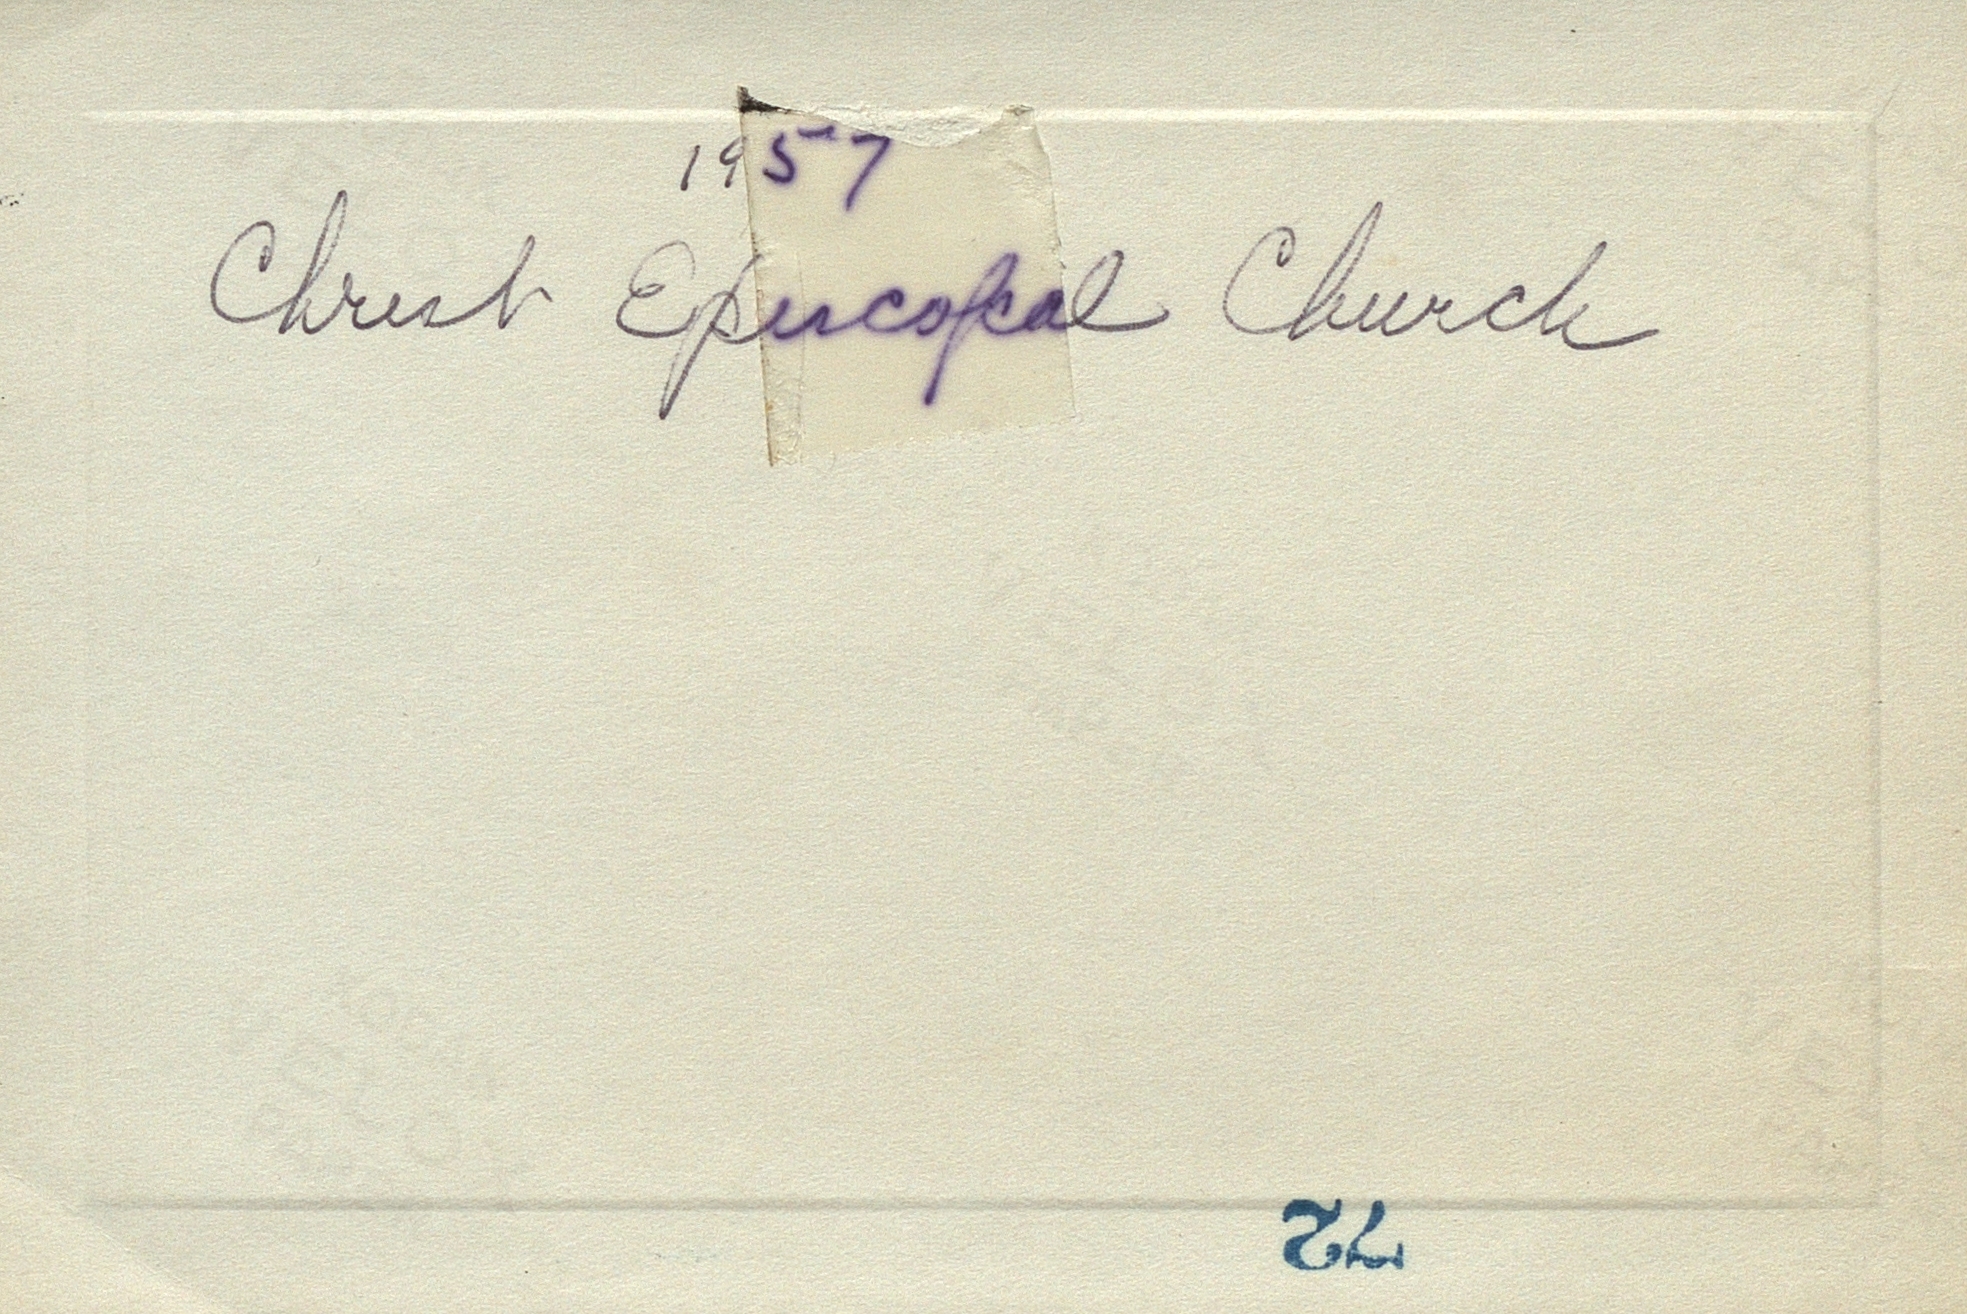 1957
Christ Episcopal Church
72